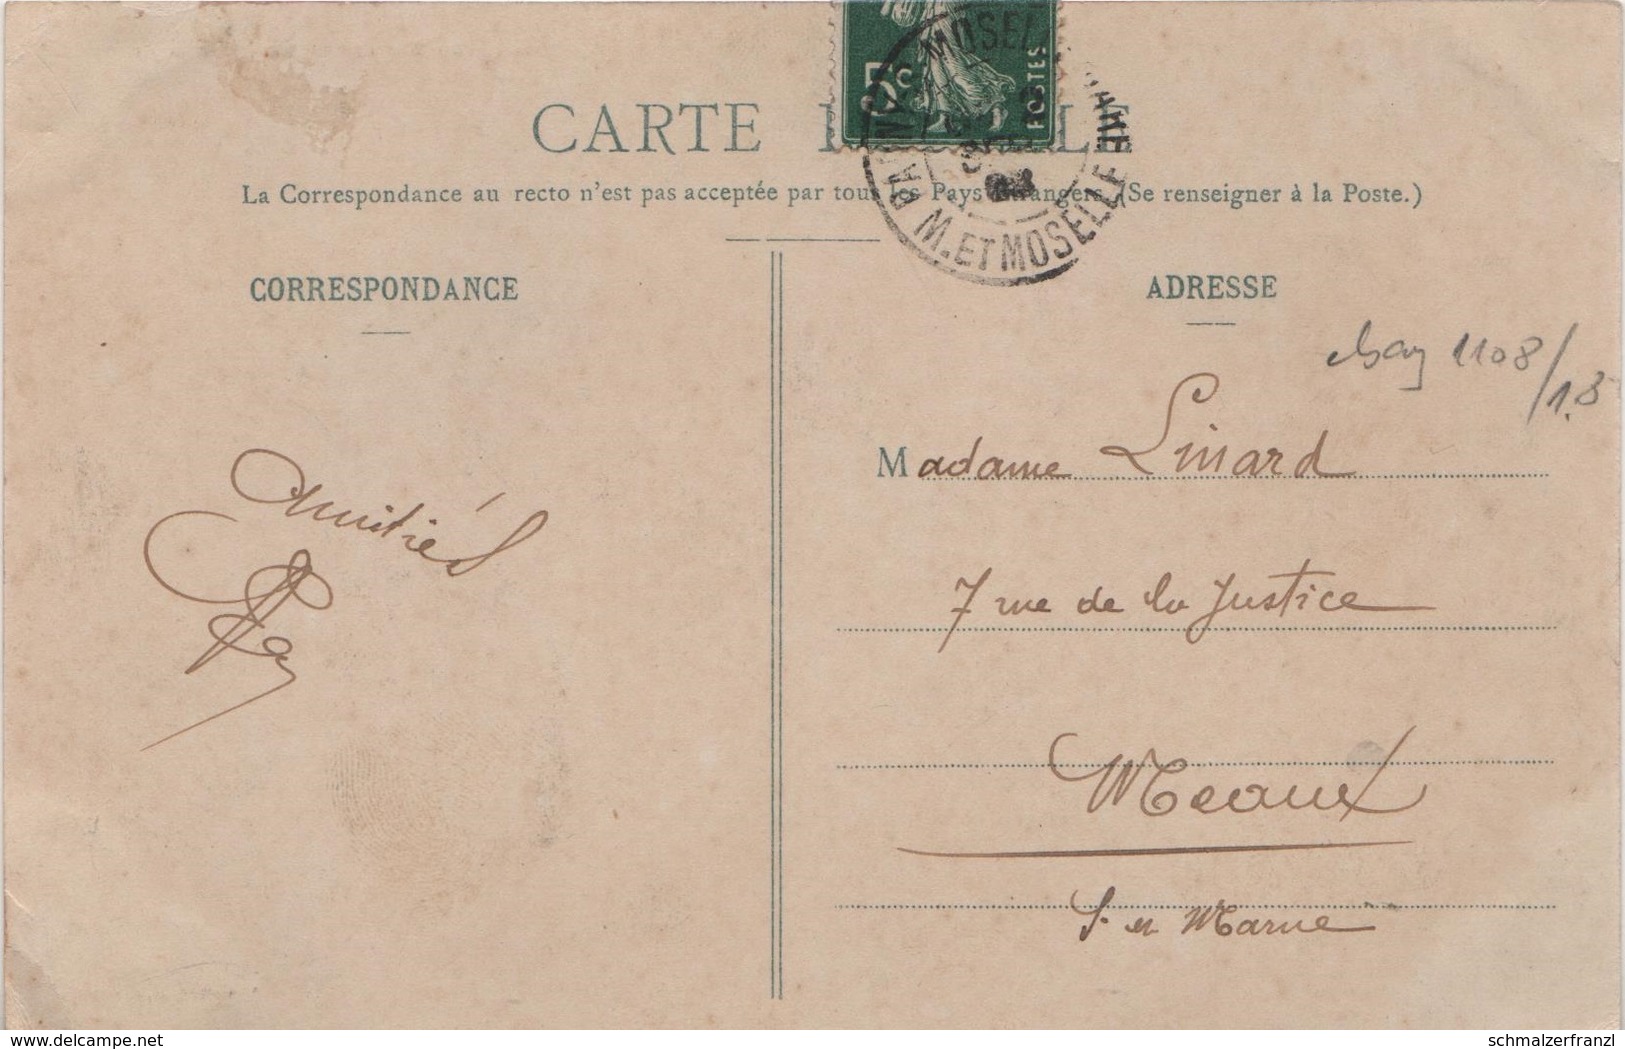 5c
POSTES
CARTE
La Correspondance au recto n'est pas acceptée par tous les Pays étrangers (Se renseigner à la Poste.)
M. ET MOSELLE
CORRESPONDANCE
ADRESSE
1108/1.8
Madame Linard
Amitiés
7 rue de la Justice
Meaux
S. et Marne
delcampe.net
schmalzerfranzl